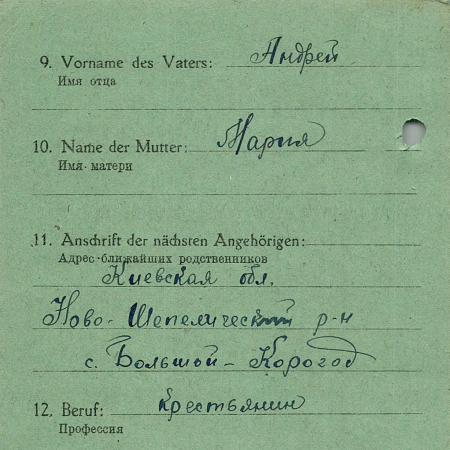 9. Vorname des Vaters: Андрей
Имя отца
10. Name der Mutter: Мария
Имя матери
11. Anschrift der nächsten Angehörigen:
Адрес ближайших родственников
Киевская обл.
Ново-Шепелический р-н
с. Большой-Корогод
12. Beruf: крестьянин
Профессия